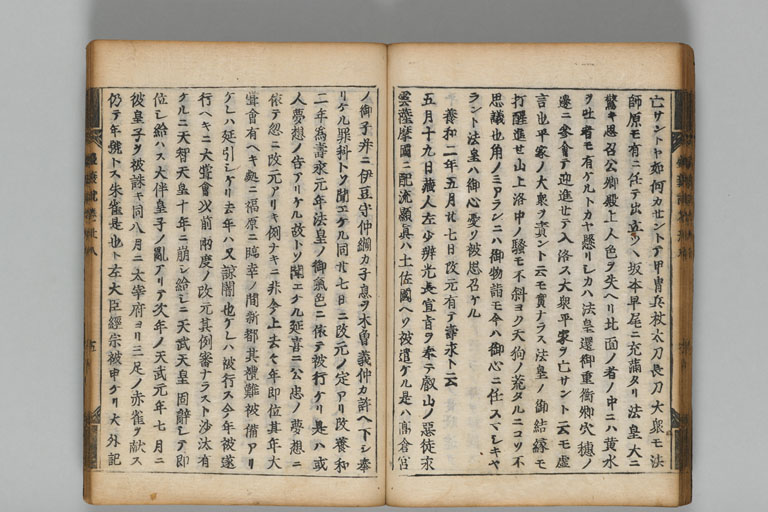 亡サントヤ如何カセントテ甲冑兵杖太刀長刀大衆モ法
師原モ有ニ任テ出立ツヽ坂本早尾ニ充滿タリ法皇大ニ
驚キ思召公卿殿上人色ヲ失ヘリ北面ノ者ノ中ニハ黄水
ヲ吐者モ有ケルトカヤ懸リシカハ法皇還御重衡卿穴穗ノ
邊ニ參會テ迎進セテ入洛ス大衆平家ヲ亡サント云モ虚
言也平家ノ大衆ヲ責ント云モ實ナラス法皇ノ御結縁モ
打醒進セ山上洛中ノ騒モ不斜ヨク天狗ノ荒タルニコソ不
思議也角ノミアランニハ御物詣モ今ハ御心ニ任スマシキヤ
ラント法皇ハ御心憂ソ被思召ケル
養和二年五月廿七日改元有テ壽永ト云
五月十九日藏人左少辨光長宣旨ヲ奉テ叡山ノ惡徒永
雲薩摩國ニ配流顯眞ハ土佐國ヘソ被遣ケル是ハ高倉宮
ノ御子并ニ伊豆守仲綱カ子息ヲ木曽義仲カ許ヘ下シ奉
リケル罪科トソ聞エケル同廿七日ニ改元ノ定アリ改養和
二年為壽永元年法皇ノ御氣色ニ依テ被行ケリ是ハ或
人夢想ノ告アリケル故トソ聞エケル延喜ニ公忠ノ夢想ニ
依テ忽ニ改元アリキ例ナキニ非今上去々年即位其年大
嘗會有ヘキ處ニ福原ニ臨幸ノ間新都其禮難被備アリ
ケレハ延引シケリ去年ハ又諒闇也ケレハ被行ス今年被遂
行ヘキニ大嘗會以前兩度ノ改元其例審ナラスト沙汰有
ケルニ天智天皇十年ニ崩シ給シニ天武天皇固辭シテ即
位シ給ハス大伴皇子ノ亂アリテ次年ノ天武元年七月ニ
彼皇子ヲ被誅キ同八月ニ太宰府ヨリ三足ノ赤雀ヲ獻ス
仍テ年號トス朱雀是也ト左大臣經宗被申ケリ大外記